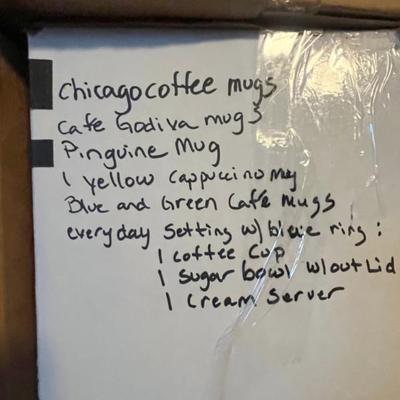 Chicago coffee mugs
Cafe Godiva mugs
Pinguine Mug
1 yellow cappuccino mug
Blue and Green Cafe Mugs
everyday Setting w/ blue ring :
1 coffee Cup
1 sugar bowl w/out Lid
1 Cream Server